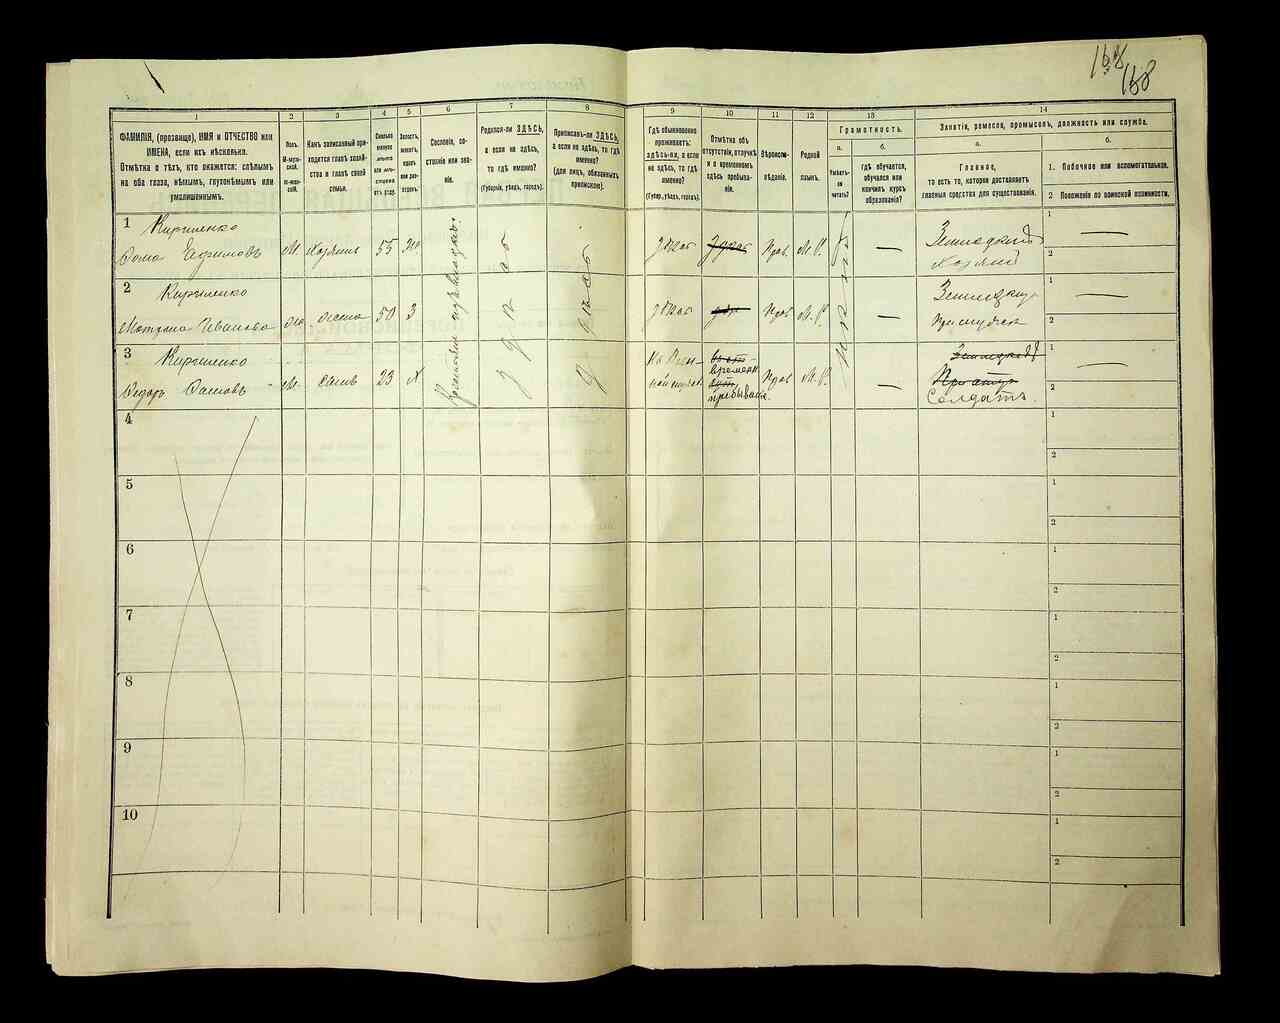 168
168
1
2
3
4
5
6
7
8
9
10
11
12
13
14
ФАМИЛІЯ, (прозвище), ИМЯ и ОТЧЕСТВО или
ИМЕНА, если ихъ нѣсколько.
Отмѣтка о тѣхъ, кто окажется: слѣпымъ
на оба глаза, нѣмымъ, глухонѣмымъ или
умалишеннымъ.
Полъ.
М-муж-
ской.
Ж-жен-
скій.
Какъ записанный при-
ходится главѣ хозяй-
ства и главѣ своей
семьи.
Сколько
минуло
лѣтъ
или мѣ-
сяцевъ
отъ роду.
Холостъ,
женатъ,
вдовъ
или раз-
веденъ.
Сословіе, со-
стояніе или зва-
ніе.
Родился-ли ЗДѢСЬ,
а если не здѣсь,
то гдѣ именно?
(Губернія, уѣздъ, городъ).
Приписанъ-ли ЗДѢСЬ,
а если не здѣсь, то гдѣ
именно?
(для лицъ, обязанныхъ
припискою).
Гдѣ обыкновенно
проживаетъ:
здѣсь-ли, а если
не здѣсь, то гдѣ
именно?
(Губер., уѣздъ, городъ).
Отмѣтка объ
отсутствіи, отлучкѣ
и о временномъ
здѣсь пребыва-
ніи.
Вѣроиспо-
вѣданіе.
Родной
языкъ.
Грамотность.
а.
Умѣетъ-
ли
читать?
б.
гдѣ обучается,
обучался или
кончилъ курсъ
образованія?
Занятіе, ремесло, промыселъ, должность или служба.
а.
Главное,
то есть то, которое доставляетъ
главныя средства для существованія.
б.
1. Побочное или вспомогательное.
2 Положеніе по воинской повинности.
1
Кириленко
Фома Ефимовъ
М. Хозяинъ 55 Же.
Здѣсь Здѣсь Прав. М.Р. —
Земледѣлецъ
Хозяинъ
1 —
2
2
Кириленко
Матрона Иванова
Же жена 50 З
Здѣсь Прав М.Р. —
Земледѣлецъ
1 —
2
3
Кириленко
Ѳедоръ Фомовъ
М. Сынъ 23 Х
На Воен-
ной службѣ
времен.
пребывает.
Прав М.Р. —
Солдатъ.
1 —
2
4
1
2
5
1
2
6
1
2
7
1
2
8
1
2
9
1
2
10
1
2